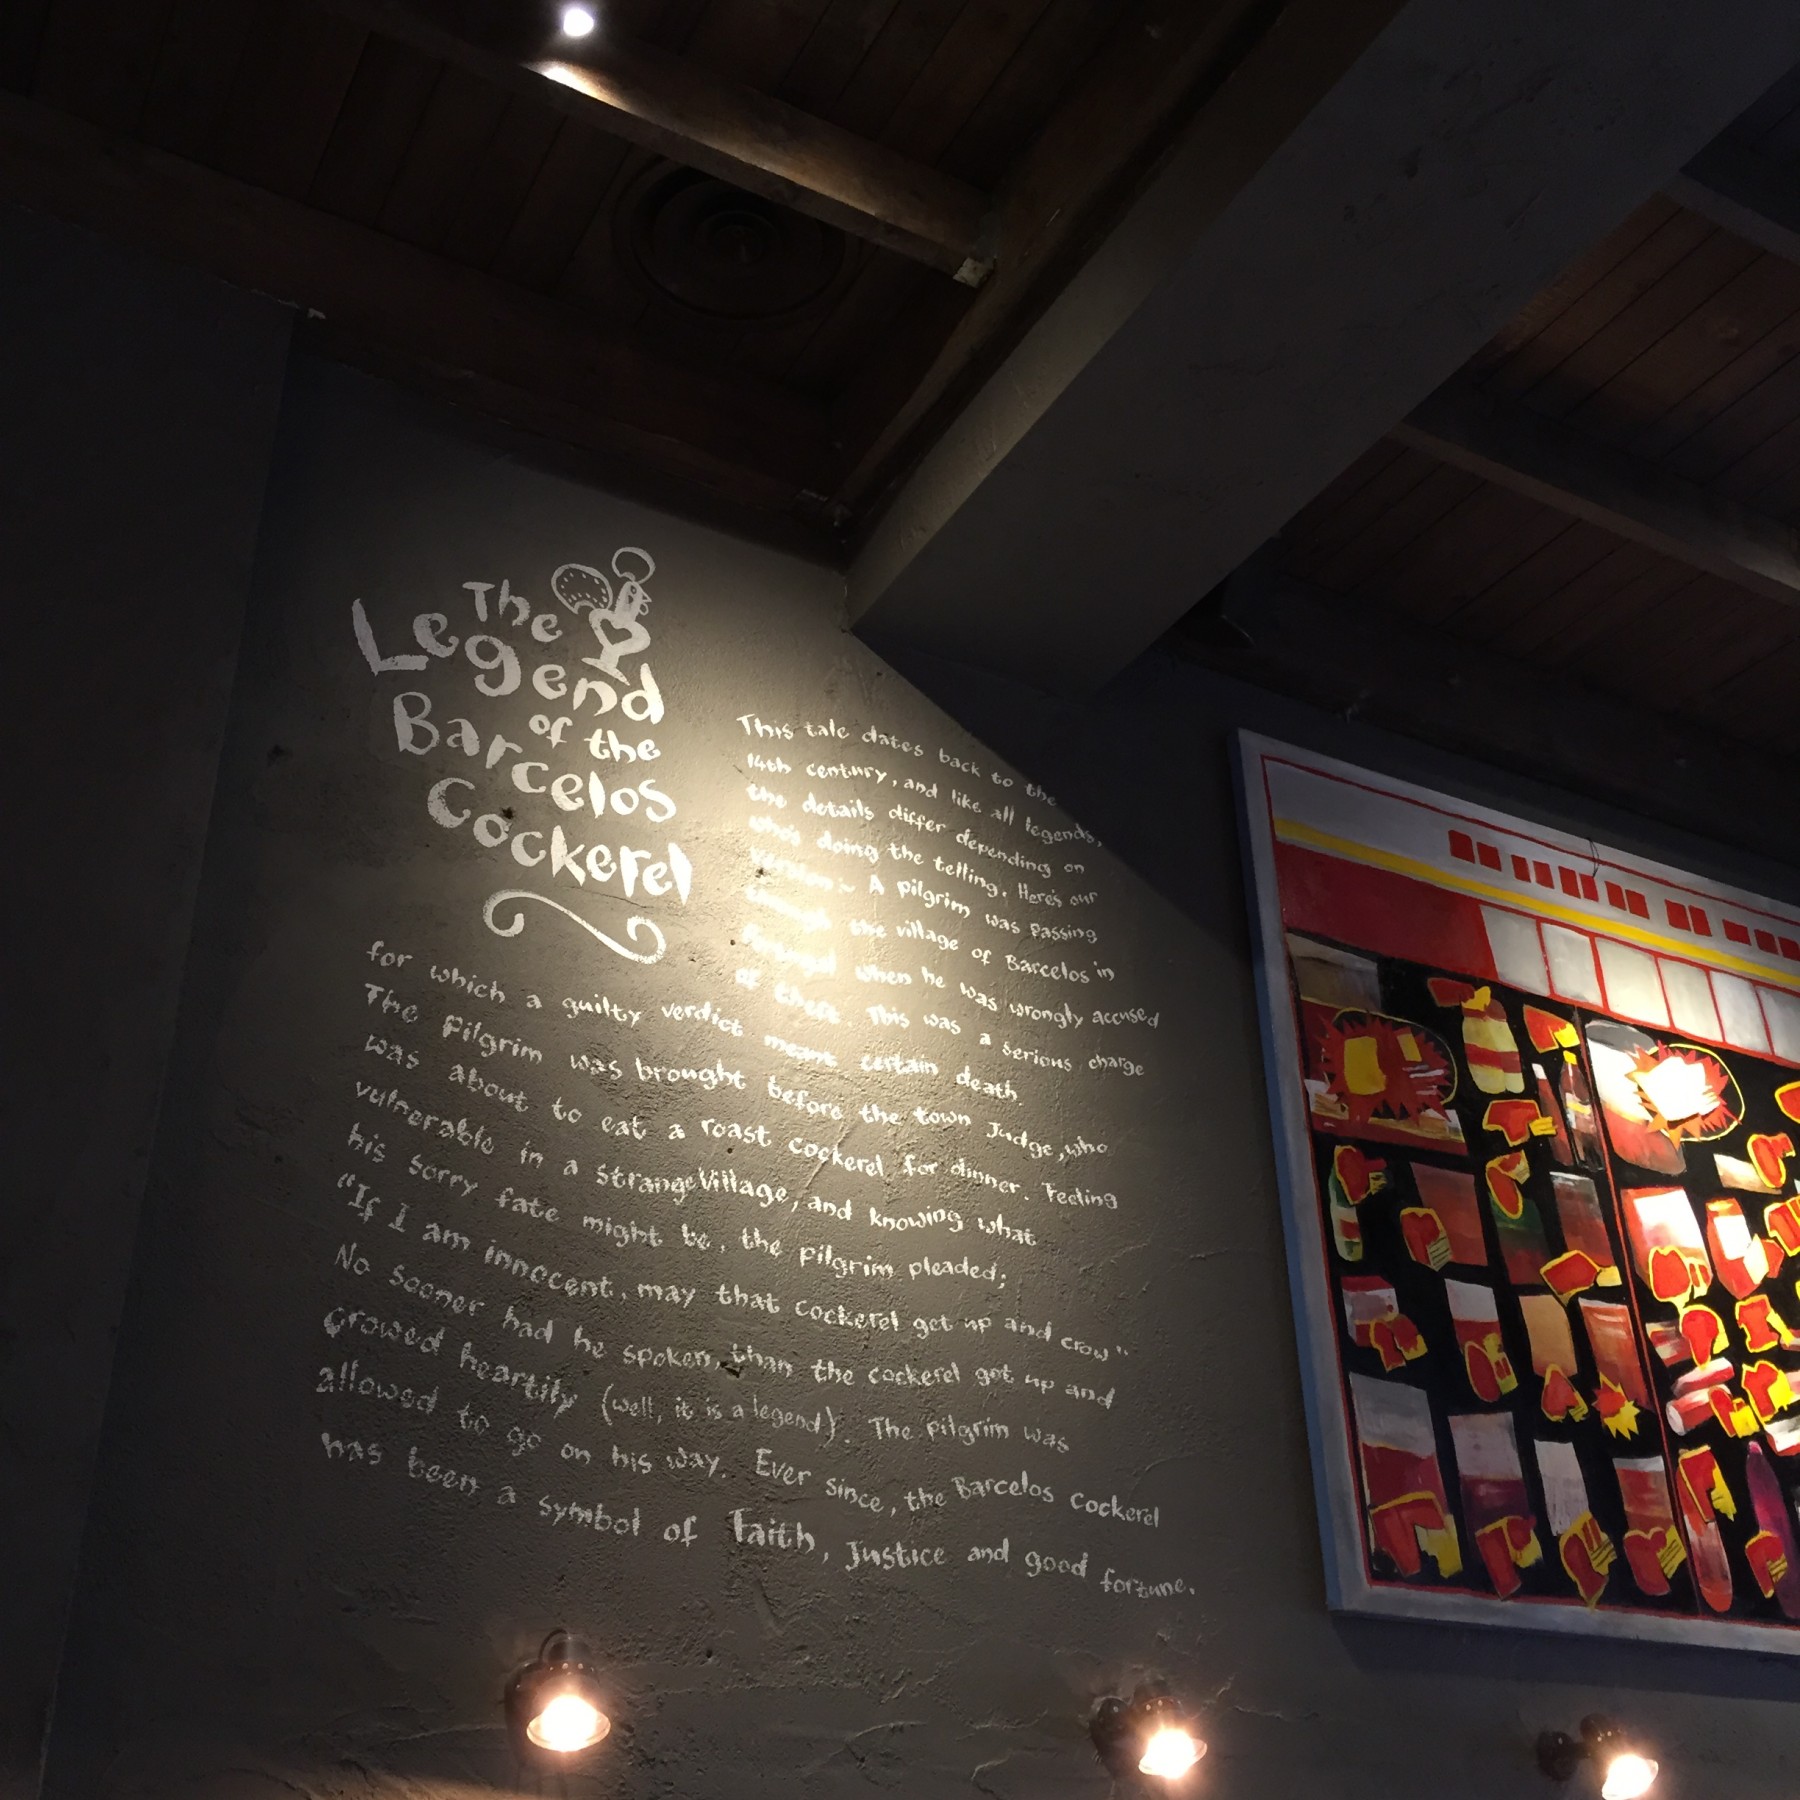 The
Legend
of the
Barcelos
Cockerel
This tale dates back to the
14th century, and like all legends,
the details differ depending on
who's doing the telling. Here's our
version:~ A pilgrim was passing
through the village of Barcelos in
Portugal when he was wrongly accused
of theft. This was a serious charge
for which a guilty verdict meant certain death.
The Pilgrim was brought before the town Judge, who
was about to eat a roast cockerel for dinner. Feeling
vulnerable in a strange Village, and knowing what
his sorry fate might be, the pilgrim pleaded;
"If I am innocent, may that cockerel get up and crow"
No sooner had he spoken, than the cockerel got up and
crowed heartily (well, it is a legend). The pilgrim was
allowed to go on his way. Ever since, the Barcelos cockerel
has been a symbol of Faith, Justice and good fortune.